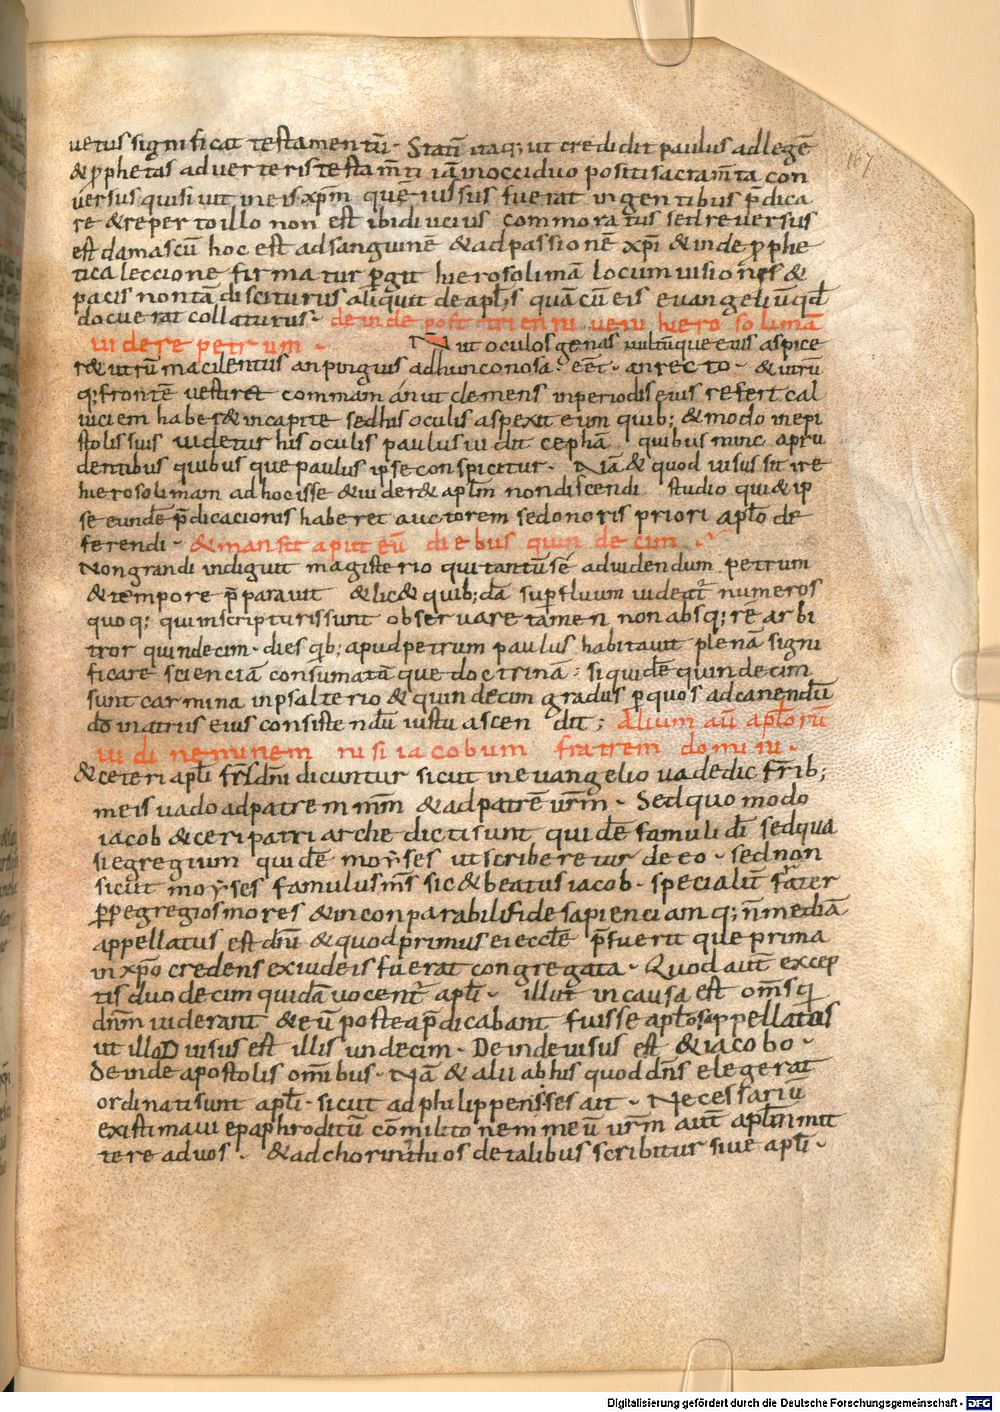 uetus significat testamentū. Statī itaq; ut credidit paulus ad legē
& p̱phetas ad ueteris testam̄ti iā in occiduo positi sacram̄ta con
uersus quisiuit in eis xpm̄ quē iussus fuerat in gentibus p̄dica
re & reperto illo non est ibi diucius commoratus sed reuersus
est damascū hoc est ad sanguinē & ad passionē xpi & inde p̱phe
tica leccione firmatur p̱git hierosolimā locum uisiones &
pacis non tā disciturus aliquit de apl̄is quā cū eis euangeliū qd̄
docuerat collaturus. deinde post trienniū ueni hierosolimā
uidere petrum.
N̄ ut oculos genas uultūque eius aspice
r& utrū macilentus an pinguis adhunco nosa eet. an recto. & utrū
q; frontē uestiret comma m an ut clemens in periodis eius refert cal
uiciem haber& in capite sed his oculis aspexit eum quib; & modo in epi
stolis suis uidetur his oculis paulus uidit cephā quibus nunc a pru
dentibus quibusque paulus ipse conspicitur. Nā & quod uisus sit ire
hierosolimam ad hoc isse & uider& aplm̄ non discendi studio qui & ip
se eundē p̄dicacionis haberet auctorem sed onoris priori aplō de
ferendi. & mansit aput eū diebus quindecim
Non grandi indiguit magisterio qui tantū sé ad uidendum petrum
& tempore p̄parauit & lic& quib;dā sup̱fluum uideat̄ numeros
quoq; qui in scripturis sunt obseruare tamen non absq; rē arbi
tror quindecim. dies qib; apud petrum paulus habitauit plenā signi
ficare scienciā consūmatāque doctrinā. siquidē quindecim
sunt carmina in psalterio & quindecim gradus p̱ quos ad canendū
dō in atriis eius consistendū iustu ascendit; Alium aū aplorū
uidi neminem nisi iacobum fratrem domini.
& ceteri apli frs̄ dn̄i dicuntur sicut in euangelio uade dic frīb;
meis uado ad patrem m̄m & ad patrē ur̄m. Sed quomodo
iacob & ceri patriarche dicti sunt quidē famuli dī sed qua
si egregium quidē moẏses ut scriberetur de eo. sed non
sicut moẏses famulus m̄s sic & beatus iacob. specialit̄ frater
p̱p egregios mores & inconparabili fide sapienciamq; n̄ mediā
appellatus est dn̄i & quod primus ei eccl̄e p̄fuerit que prima
in xpō credens ex iudeis fuerat congregata. Quod aut̄ excep
tis duodecim quidā uocent̄ apli. illut in causa est om̄s qi
dn̄m uiderant & eū postea p̄dicabant fuisse aplōs appellatos
ut illoD uisus est illis undecim. Deinde uisus est & iacobo.
deinde apostolis om̄ibus. Nā & alii ab his quod dn̄s elegerat
ordinati sunt apl̄i. sicut ad philippensises ait. Necessariū
existimaui epaphroditū cōmilitonem meū ur̄m aut̄ aplm̄ mit
tere ad uos. & ad chorinthios de talibus scribitur siue apl̄i.
Digitalisierung gefördert durch die Deutsche Forschungsgemeinschaft - DFG